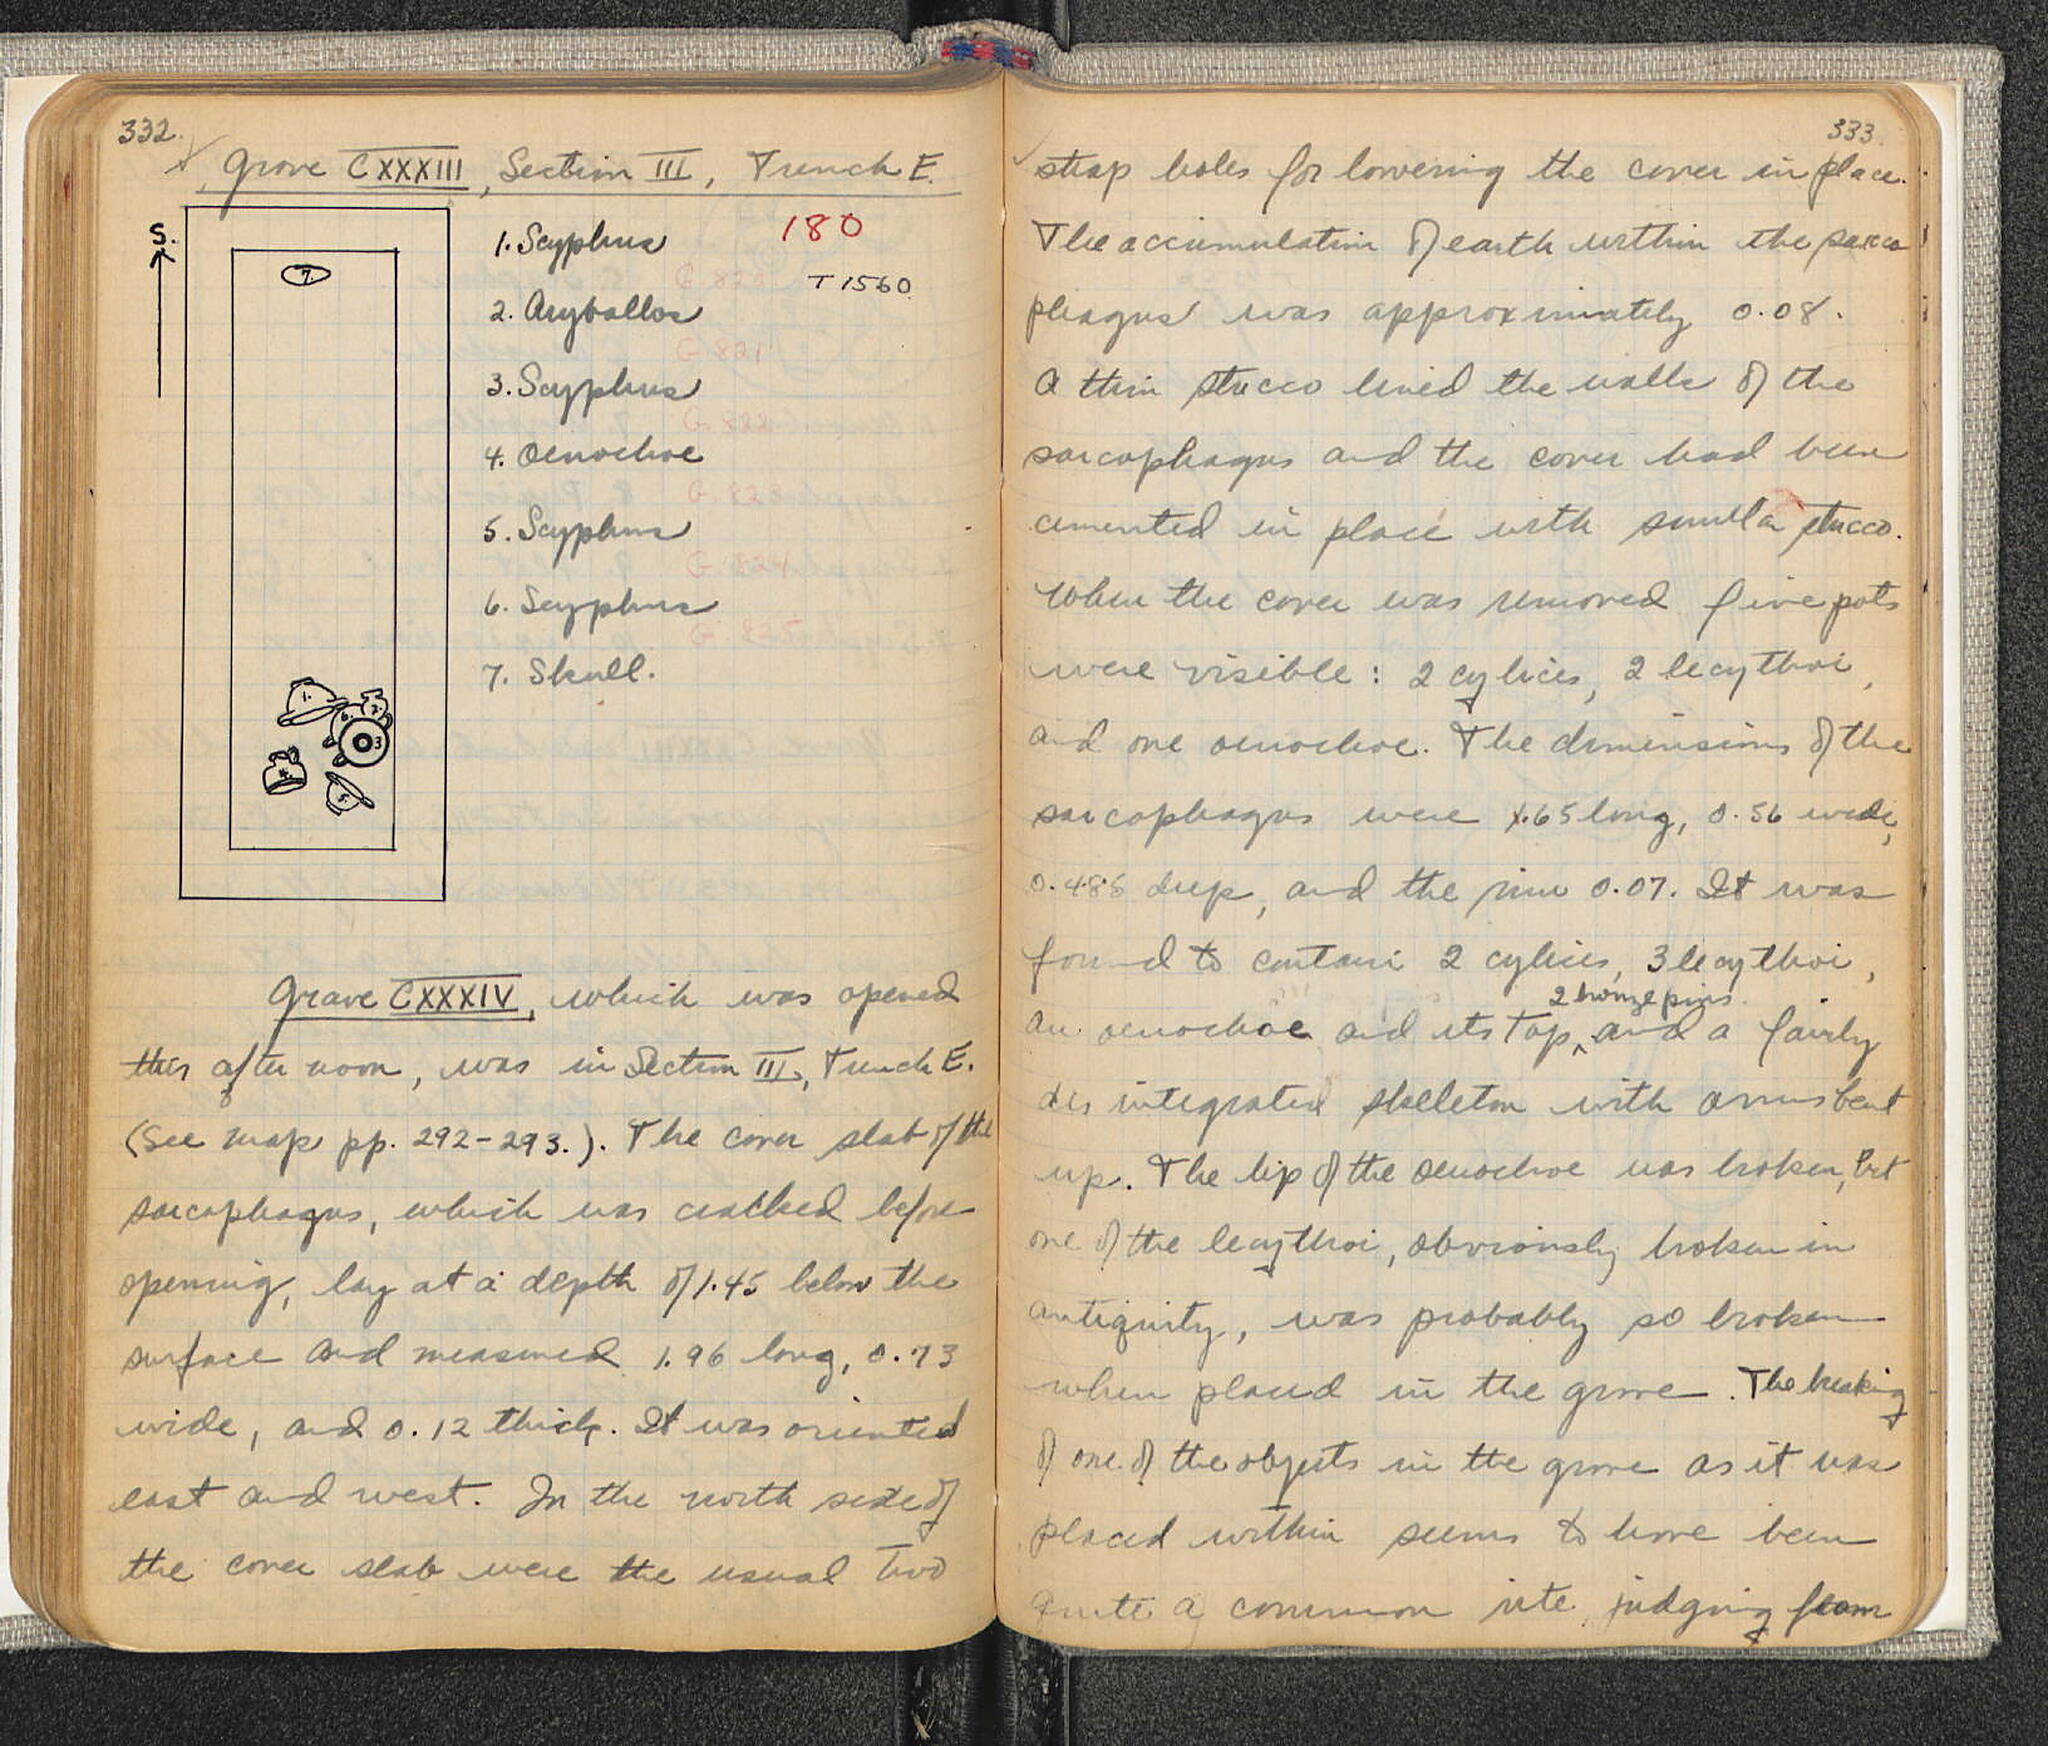 332.
Grave CXXXIII, Section III, Trench E.
S.
1. Scyphus 180
G.820 T 1560
2. Aryballos
G.821
3. Scyphus
G.822
4. Oenochoe
G.823
5. Scyphus
G.824
6. Scyphus
G.825
7. Skull.
7.
1.
6. 2.
3
4.
5
Grave CXXXIV, which was opened
this afternoon, was in Section III, Trench E.
(See map pp. 292-293.). The cover slab of the
sarcophagus, which was cracked before
opening, lay at a depth of 1.45 below the
surface and measured 1.96 long, 0.73
wide, and 0.12 thick. It was oriented
east and west. In the north side of
the cover slab were the usual two
333.
strap holes for lowering the cover in place.
The accumulation of earth within the sarco
phagus was approximately 0.08.
A thin stucco lined the walls of the
sarcophagus and the cover had been
cemented in place with similar stucco.
When the cover was removed five pots
were visible: 2 cylices, 2 lecythoi,
and one oenochoe. The dimensions of the
sarcophagus were 1.65 long, 0.56 wide,
0.485 deep, and the rim 0.07. It was
found to contain 2 cylices, 3 lecythoi,
2 bronze pins
an oenochoe and its top, and a fairly
disintegrated skeleton with arms bent
up. The lip of the oenochoe was broken, but
one of the lecythoi, obviously broken in
antiquity, was probably so broken
when placed in the grave. The breaking
of one of the objects in the grave as it was
placed within seems to have been
quite a common rite judging from